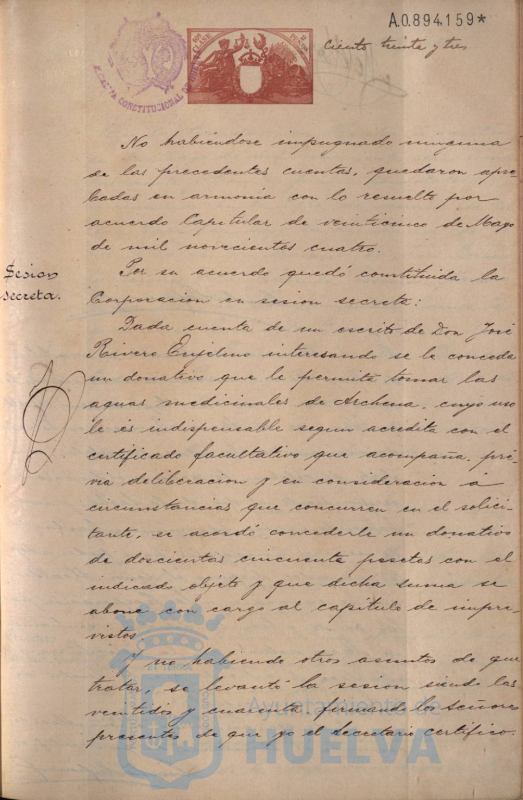 A.0.894.159*
Ciento treinta y tres
No habiéndose impugnado ninguna
de las precedentes cuentas, quedaron apro-
badas en armonía con lo resuelto por
acuerdo Capitular de veinticinco de Mayo
de mil novecientos cuatro.
Por su acuerdo quedó constituida la
Corporación en sesion secreta:
Sesion
secreta.
Dada cuenta de un escrito de Don José
Rivero interesando se le conceda
un donativo que le permita tomar las
aguas medicinales de Archena, cuyo uso
le es indispensable segun acredita con el
certificado facultativo que acompaña, pré-
via deliberacion y en consideracion á
circunstancias que concurren en el solici-
tante, se acordó concederle un donativo
de doscientas cincuenta pesetas con el
indicado objeto y que dicha suma se
abone con cargo al capitulo de impre-
vistos.
Y no habiendo otros asuntos de que
tratar, se levantó la sesion siendo las
veintidos y cuarenta firmando los Señores
presentes de que yo el Secretario certifico.
Ayuntamiento de
HUELVA